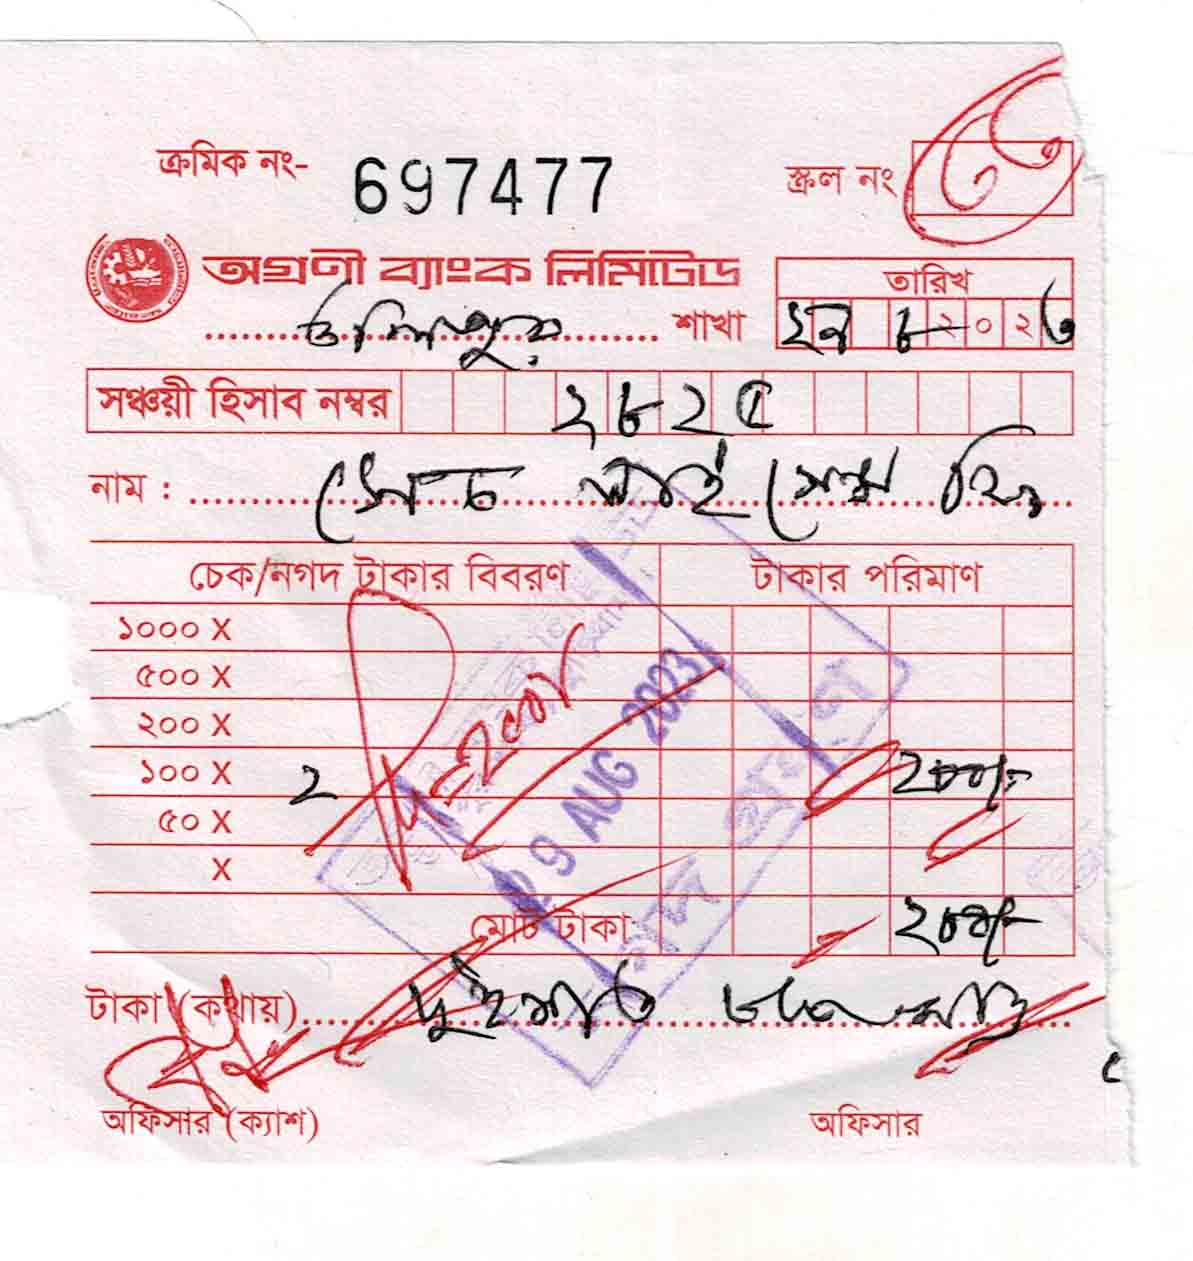 ক্রমিক নং- 697477
স্ক্রল নং ৩৩
অগ্রণী ব্যাংক লিমিটেড
তারিখ
উলিপুর শাখা ২৯ ৮ ২০২৩
সঞ্চয়ী হিসাব নম্বর ২৮২৫
নাম : সেচ লাইসেন্স ফি
চেক/নগদ টাকার বিবরণ টাকার পরিমাণ
১০০০ X
৫০০ X
২০০ X
১০০ X ২ ২০০/-
৫০ X
X
২ 9 AUG 2023
নগদ গ্রহণ
মোট টাকা ২০০/-
টাকা (কথায়) দুইশত টাকা মাত্র
অফিসার (ক্যাশ) অফিসার